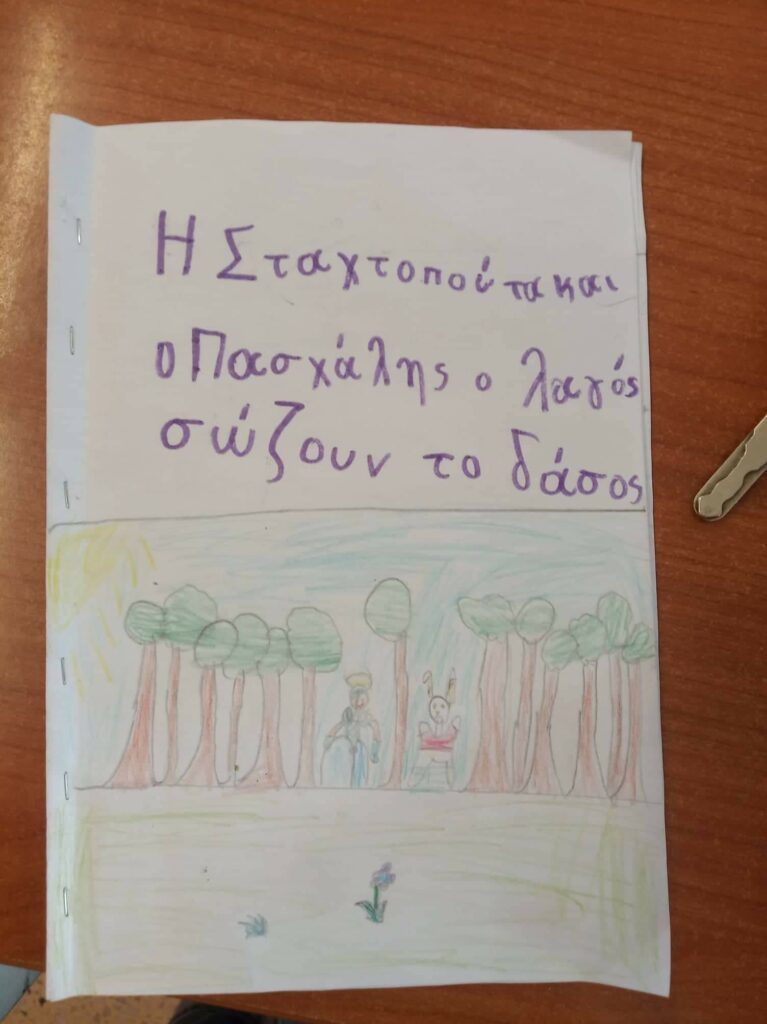 Η Σταχτοπούτα και
ο Πασχάλης ο λαγός
σώζουν το δάσος